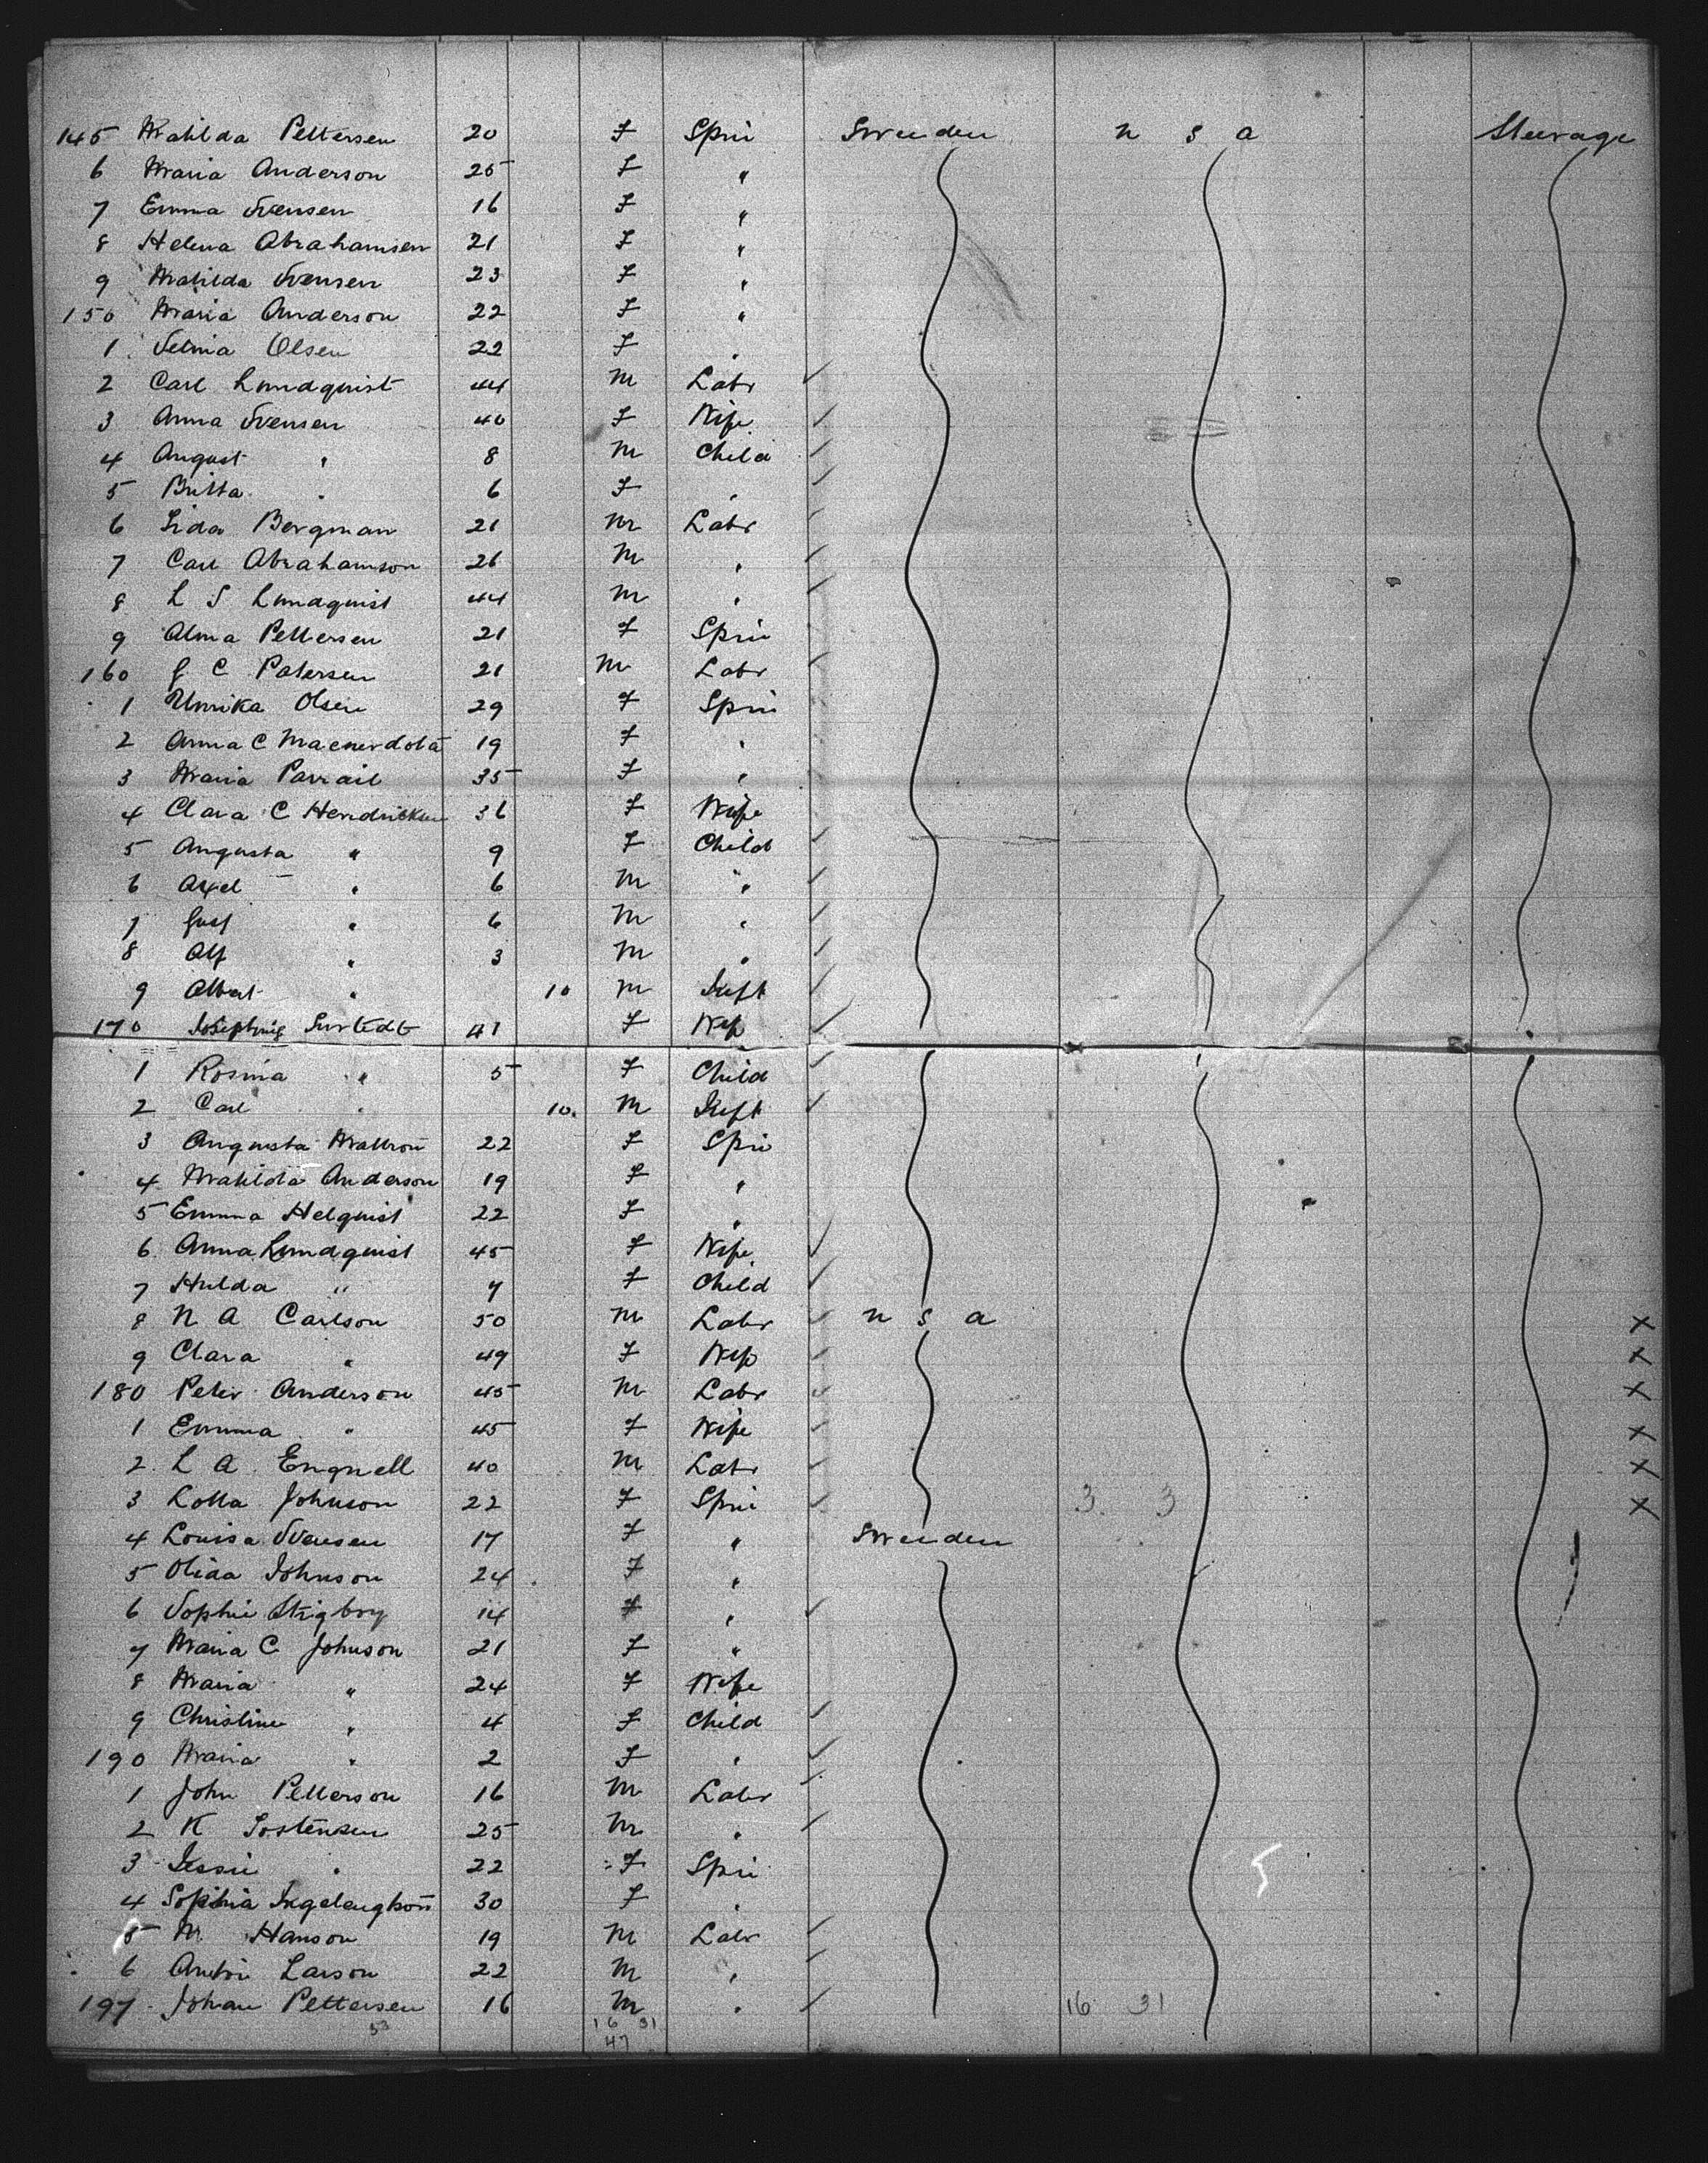 145 Matilda Pettersen 20 F Spin Sweeden U S A Steerage
6 Maria Anderson 25 F "
7 Emma Svensen 16 F "
8 Helena Abrahamsen 21 F "
9 Matilda Svensen 23 F "
150 Maria Anderson 22 F "
1 Selma Olsen 22 F "
2 Carl Lundquist 44 M Labr
3 Anna Svensen 40 F Wife
4 August " 8 M Child
5 Britta " 6 F "
6 Lida Bergman 21 M Labr
7 Carl Abrahamson 26 M "
8 L S Lundquist 44 M "
9 Alma Pettersen 21 F Spin
160 G C Patersen 21 M Labr
1 Olsen 29 F Spin
2 Anna C 19 F "
3 Maria 35 F "
4 Clara C Hendricksen 36 F Wife
5 Augusta " 9 F Child
6 Axel " 6 M "
7 Gust " 6 M "
8 Alf " 3 M "
9 Albert " 10 M Inft
170 41 F Wife
1 Rosina " 5 F Child
2 Carl " 10 M Inft
3 Augusta 22 F Spin
4 Matilda Anderson 19 F "
5 Emma Helquist 22 F "
6 Anna Lundquist 45 F Wife
7 Hulda " 7 F Child
8 N A Carlson 50 M Labr U S A X
9 Clara " 49 F Wife X
180 Peter Anderson 45 M Labr X
1 Emma " 45 F Wife X
2 L A Engnell 40 M Labr X
3 Lotta Johnson 22 F Spin 3 3 X
4 Louisa Svensen 17 F " Sweeden
5 Olida Johnson 24 F "
6 Sophie 14 F "
7 Maria C Johnson 21 F "
8 Maria " 24 F Wife
9 Christine " 4 F Child
190 Maria " 2 F "
1 John Petterson 16 M Labr
2 K 25 M "
3 Jessie " 22 F Spin
4 Sophia 30 F "
5 M Hanson 19 M Labr
6 Larson 22 M "
197 Johan Pettersen 16 M " 16 31
53 16 31
47